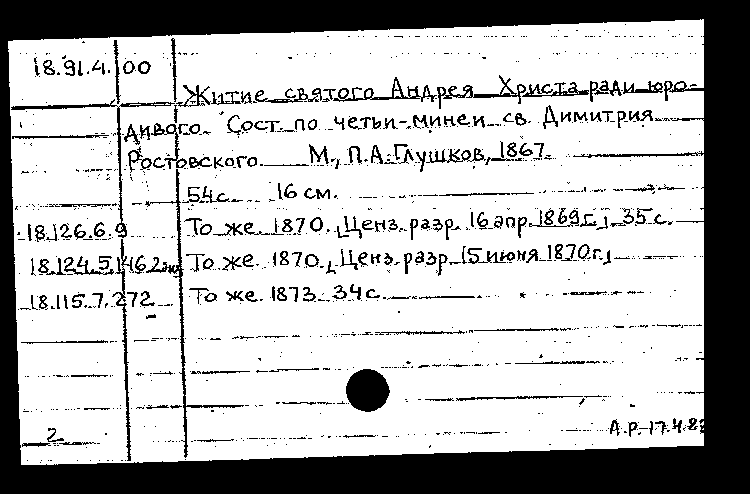 18.91.4.100
Житие святого Андрея Христа ради юро-
дивого. Сост. по четьи-минеи св. Димитрия
Ростовского. М., П.А. Глушков, 1867.
54 с. 16 см.
18.126.6.9 То же. 1870. [Ценз. разр. 16 апр. 1869 г.], 35 с.
18.124.5.146 То же. 1870. [Ценз. разр. 15 июня 1870 г.]
18.115.7.272 То же. 1873. 34 с.
2 А.Р. 17.4.82